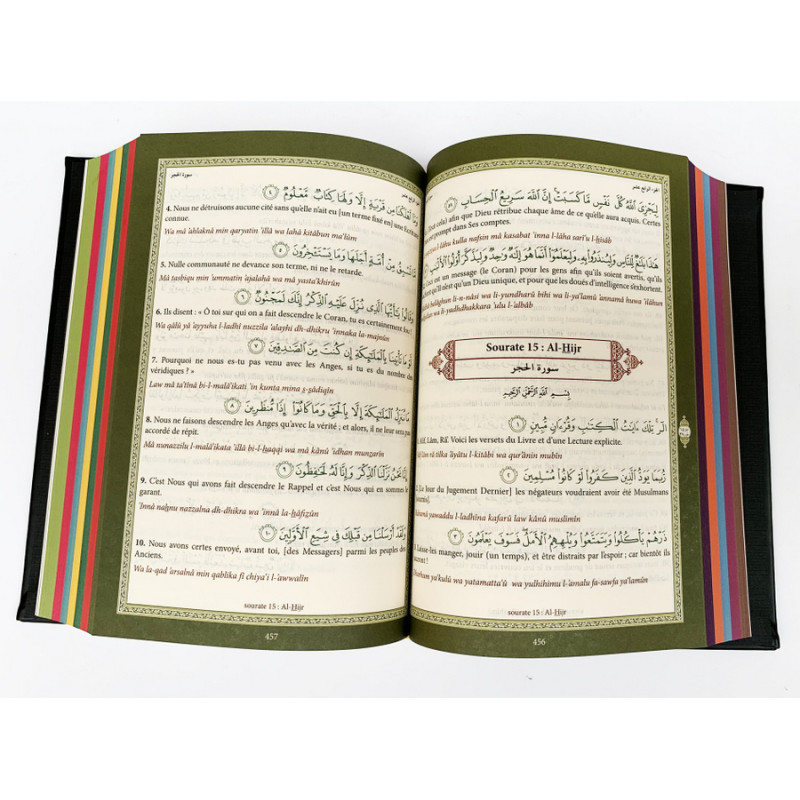 الجزء الرابع عشر
لِيَجْزِيَ اللَّهُ كُلَّ نَفْسٍ مَّا كَسَبَتْ إِنَّ اللَّهَ سَرِيعُ الْحِسَابِ
cela) afin que Dieu rétribue chaque âme de ce qu'elle aura acquis. Certes
prompt dans Ses comptes.
l-lāhu kulla nafsin mā kasabat 'inna l-lāha sarī'u l-ḥisāb
هَٰذَا بَلَاغٌ لِّلنَّاسِ وَلِيُنذَرُوا بِهِ وَلِيَعْلَمُوا أَنَّمَا هُوَ إِلَٰهٌ وَاحِدٌ وَلِيَذَّكَّرَ أُولُوا الْأَلْبَابِ
est un message (le Coran) pour les gens afin qu'ils soient avertis, qu'ils
qu'Il n'est qu'un Dieu unique, et pour que les doués d'intelligence s'exhortent.
balāghun li-n-nāsi wa li-yundharū bihi wa li-ya'lamū 'annamā huwa 'ilāhun
wa li-yadhdhakkara 'ulu l-'albāb
Sourate 15 : Al-Ḥijr
سورة الحجر
بِسْمِ اللَّهِ الرَّحْمَٰنِ الرَّحِيمِ
الٓر تِلْكَ آيَاتُ الْكِتَابِ وَقُرْآنٍ مُّبِينٍ ١
Alif, Lām, Rā'. Voici les versets du Livre et d'une Lecture explicite.
lām rā tilka 'āyātu l-kitābi wa qur'ānin mubīn
رُّبَمَا يَوَدُّ الَّذِينَ كَفَرُوا لَوْ كَانُوا مُسْلِمِينَ ٢
[Le Jour du Jugement Dernier] les négateurs voudraient avoir été Musulmans
yawaddu l-ladhīna kafarū law kānū muslimīn
ذَرْهُمْ يَأْكُلُوا وَيَتَمَتَّعُوا وَيُلْهِهِمُ الْأَمَلُ فَسَوْفَ يَعْلَمُونَ ٣
Laisse-les manger, jouir (un temps), et être distraits par l'espoir ; car bientôt ils
ya'kulū wa yatamatta'ū wa yulhihimu l-'amalu fa-sawfa ya'lamūn
sourate 15 : Al-Ḥijr
456
سورة الحجر
وَمَا أَهْلَكْنَا مِن قَرْيَةٍ إِلَّا وَلَهَا كِتَابٌ مَّعْلُومٌ ٤
4. Nous ne détruisons aucune cité sans qu'elle n'ait eu [un terme fixé en] une Écriture
connue.
Wa mā 'ahlaknā min qaryatin 'illā wa lahā kitābun ma'lūm
مَّا تَسْبِقُ مِنْ أُمَّةٍ أَجَلَهَا وَمَا يَسْتَأْخِرُونَ ٥
5. Nulle communauté ne devance son terme, ni ne le retarde.
Mā tasbiqu min 'ummatin 'ajalahā wa mā yasta'khirūn
وَقَالُوا يَا أَيُّهَا الَّذِي نُزِّلَ عَلَيْهِ الذِّكْرُ إِنَّكَ لَمَجْنُونٌ ٦
6. Ils disent : « Ô toi sur qui on a fait descendre le Coran, tu es certainement fou !
Wa qālū yā 'ayyuha l-ladhī nuzzila 'alayhi dh-dhikru 'innaka la-majnūn
لَّوْ مَا تَأْتِينَا بِالْمَلَائِكَةِ إِن كُنتَ مِنَ الصَّادِقِينَ ٧
7. Pourquoi ne nous es-tu pas venu avec les Anges, si tu es du nombre des
véridiques ? »
Law mā ta'tīnā bi-l-malā'ikati 'in kunta mina ṣ-ṣādiqīn
مَا نُنَزِّلُ الْمَلَائِكَةَ إِلَّا بِالْحَقِّ وَمَا كَانُوا إِذًا مُّنظَرِينَ ٨
8. Nous ne faisons descendre les Anges qu'avec la vérité ; et alors, il ne leur sera pas
accordé de répit.
Mā nunazzilu l-malā'ikata 'illā bi-l-ḥaqqi wa mā kānū 'idhan munẓarīn
إِنَّا نَحْنُ نَزَّلْنَا الذِّكْرَ وَإِنَّا لَهُ لَحَافِظُونَ ٩
9. C'est Nous qui avons fait descendre le Rappel et c'est Nous qui en sommes le
garant.
'Innā naḥnu nazzalna dh-dhikra wa 'innā la-hu la-ḥāfiẓūn
وَلَقَدْ أَرْسَلْنَا مِن قَبْلِكَ فِي شِيَعِ الْأَوَّلِينَ ١٠
10. Nous avons certes envoyé, avant toi, [des Messagers] parmi les peuples des
Anciens.
Wa la-qad 'arsalnā min qablika fī chiya'i l-'awwalīn
sourate 15 : Al-Ḥijr
457